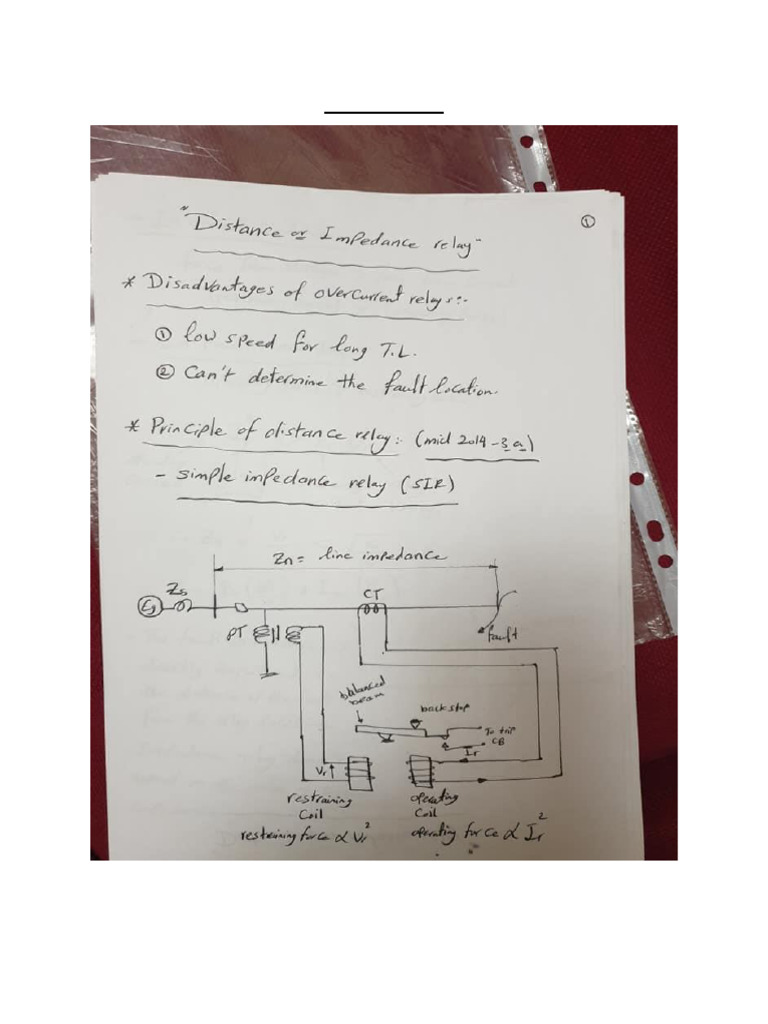 "Distance or Impedance relay"
①
* Disadvantages of overcurrent relays:-
① low speed for long T.L.
② Can't determine the fault location.
* Principle of distance relay:- (mid 2014 - 3 a)
- simple impedance relay (SIR)
Zn = line impedance
Zs
Eg
CT
PT
fault
balanced
beam
back stop
To trip
CB
Ir
Vr
restraining
Coil
operating
Coil
restraining force α Vr²
operating force α Ir²